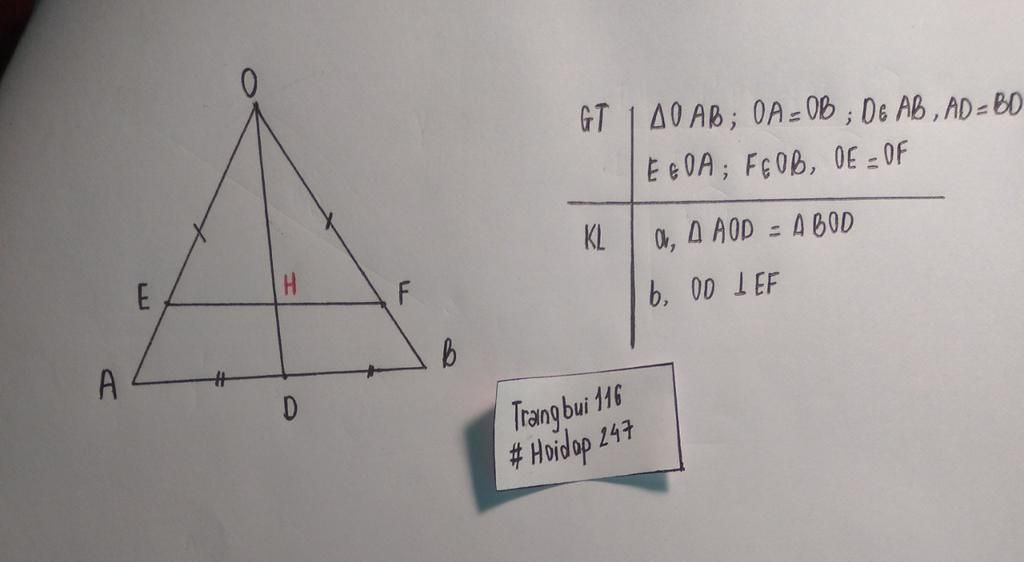 O
H
E
F
A
B
D
GT ΔOAB; OA=OB; D∈AB, AD=BD
E∈OA; F∈OB, OE=OF
KL a, ΔAOD = ΔBOD
b, OD ⊥ EF
Trangbui 116
# Hoidap 247